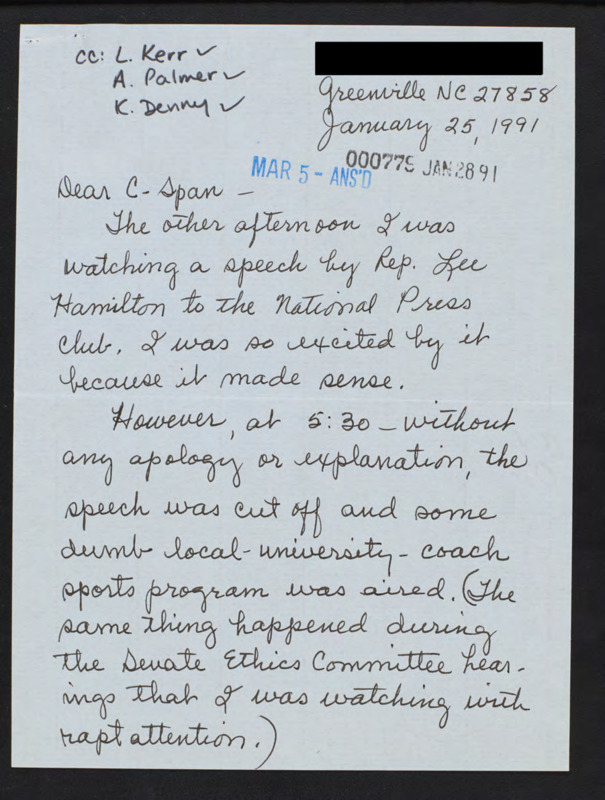 cc: L. Kerr ✓
A. Palmer ✓
K. Denny ✓
Greenville NC 27858
January 25, 1991
MAR 5 - ANS'D
000779 JAN 28 91
Dear C-Span -
The other afternoon I was
watching a speech by Rep. Lee
Hamilton to the National Press
Club. I was so excited by it
because it made sense.
However, at 5:30 - without
any apology or explanation, the
speech was cut off and some
dumb local-university-coach
sports program was aired. (The
same thing happened during
the Senate Ethics Committee hear-
ings that I was watching with
rapt attention.)